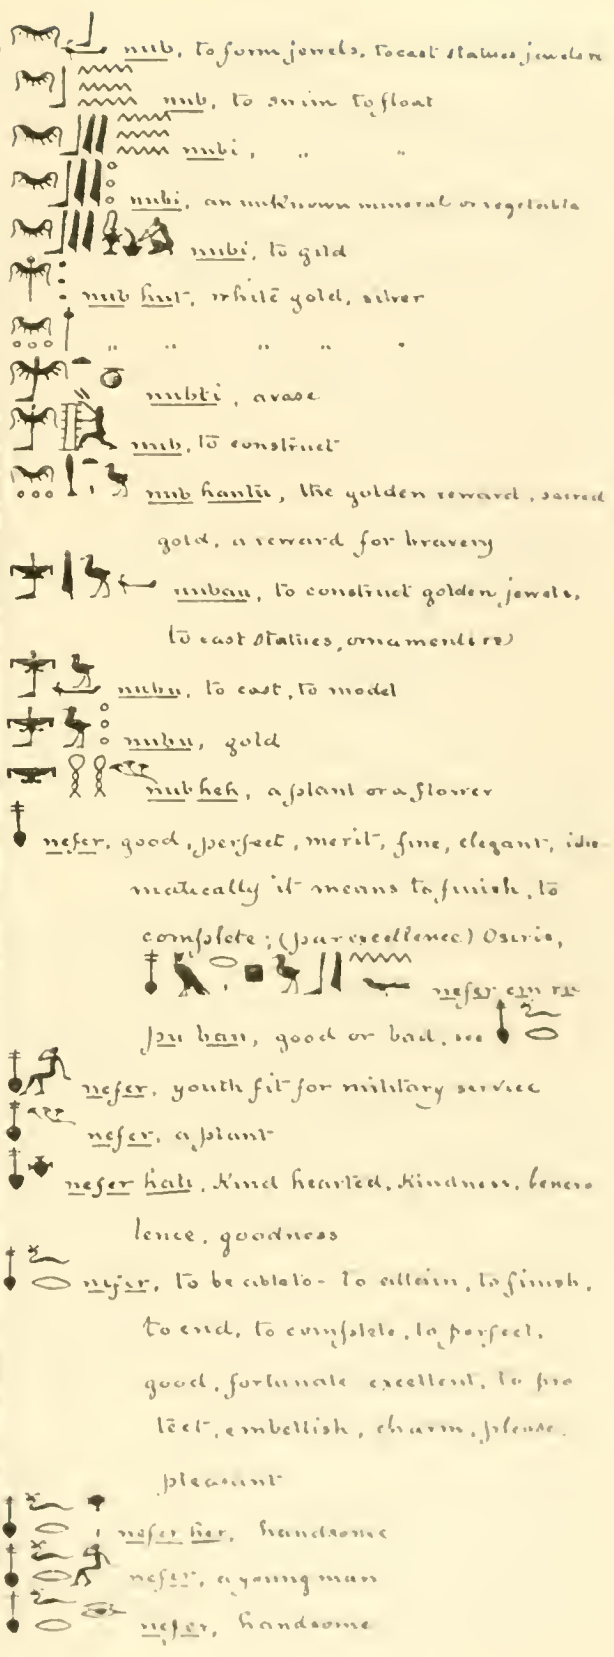 nub, to form jewels, to cast statues jewels
nub, to swim to float
nubi, „ „
nubi, an unknown mineral or vegetable
nubi, to gild
nub hut, white gold, silver
„ „ „ „ „
nubti, a vase
nub, to construct
nub hantu, the golden reward, sacred
gold, a reward for bravery
nubau, to construct golden jewels,
to cast statues, ornaments
nubu, to cast, to model
nubu, gold
nub heh, a plant or a flower
nefer, good, perfect, merit, fine, elegant, idio
matically it means to finish, to
complete; (par excellence) Osiris,
nefer em re
pu ban, good or bad,
nefer, youth fit for military service
nefer, a plant
nefer hati, kind hearted, kindness, benevo
lence, goodness
nefer, to be able to - to attain, to finish,
to end, to complete, to perfect,
good, fortunate excellent, to pro
tect, embellish, charm, please,
pleasant
nefer her, handsome
nefer, a young man
nefer, handsome